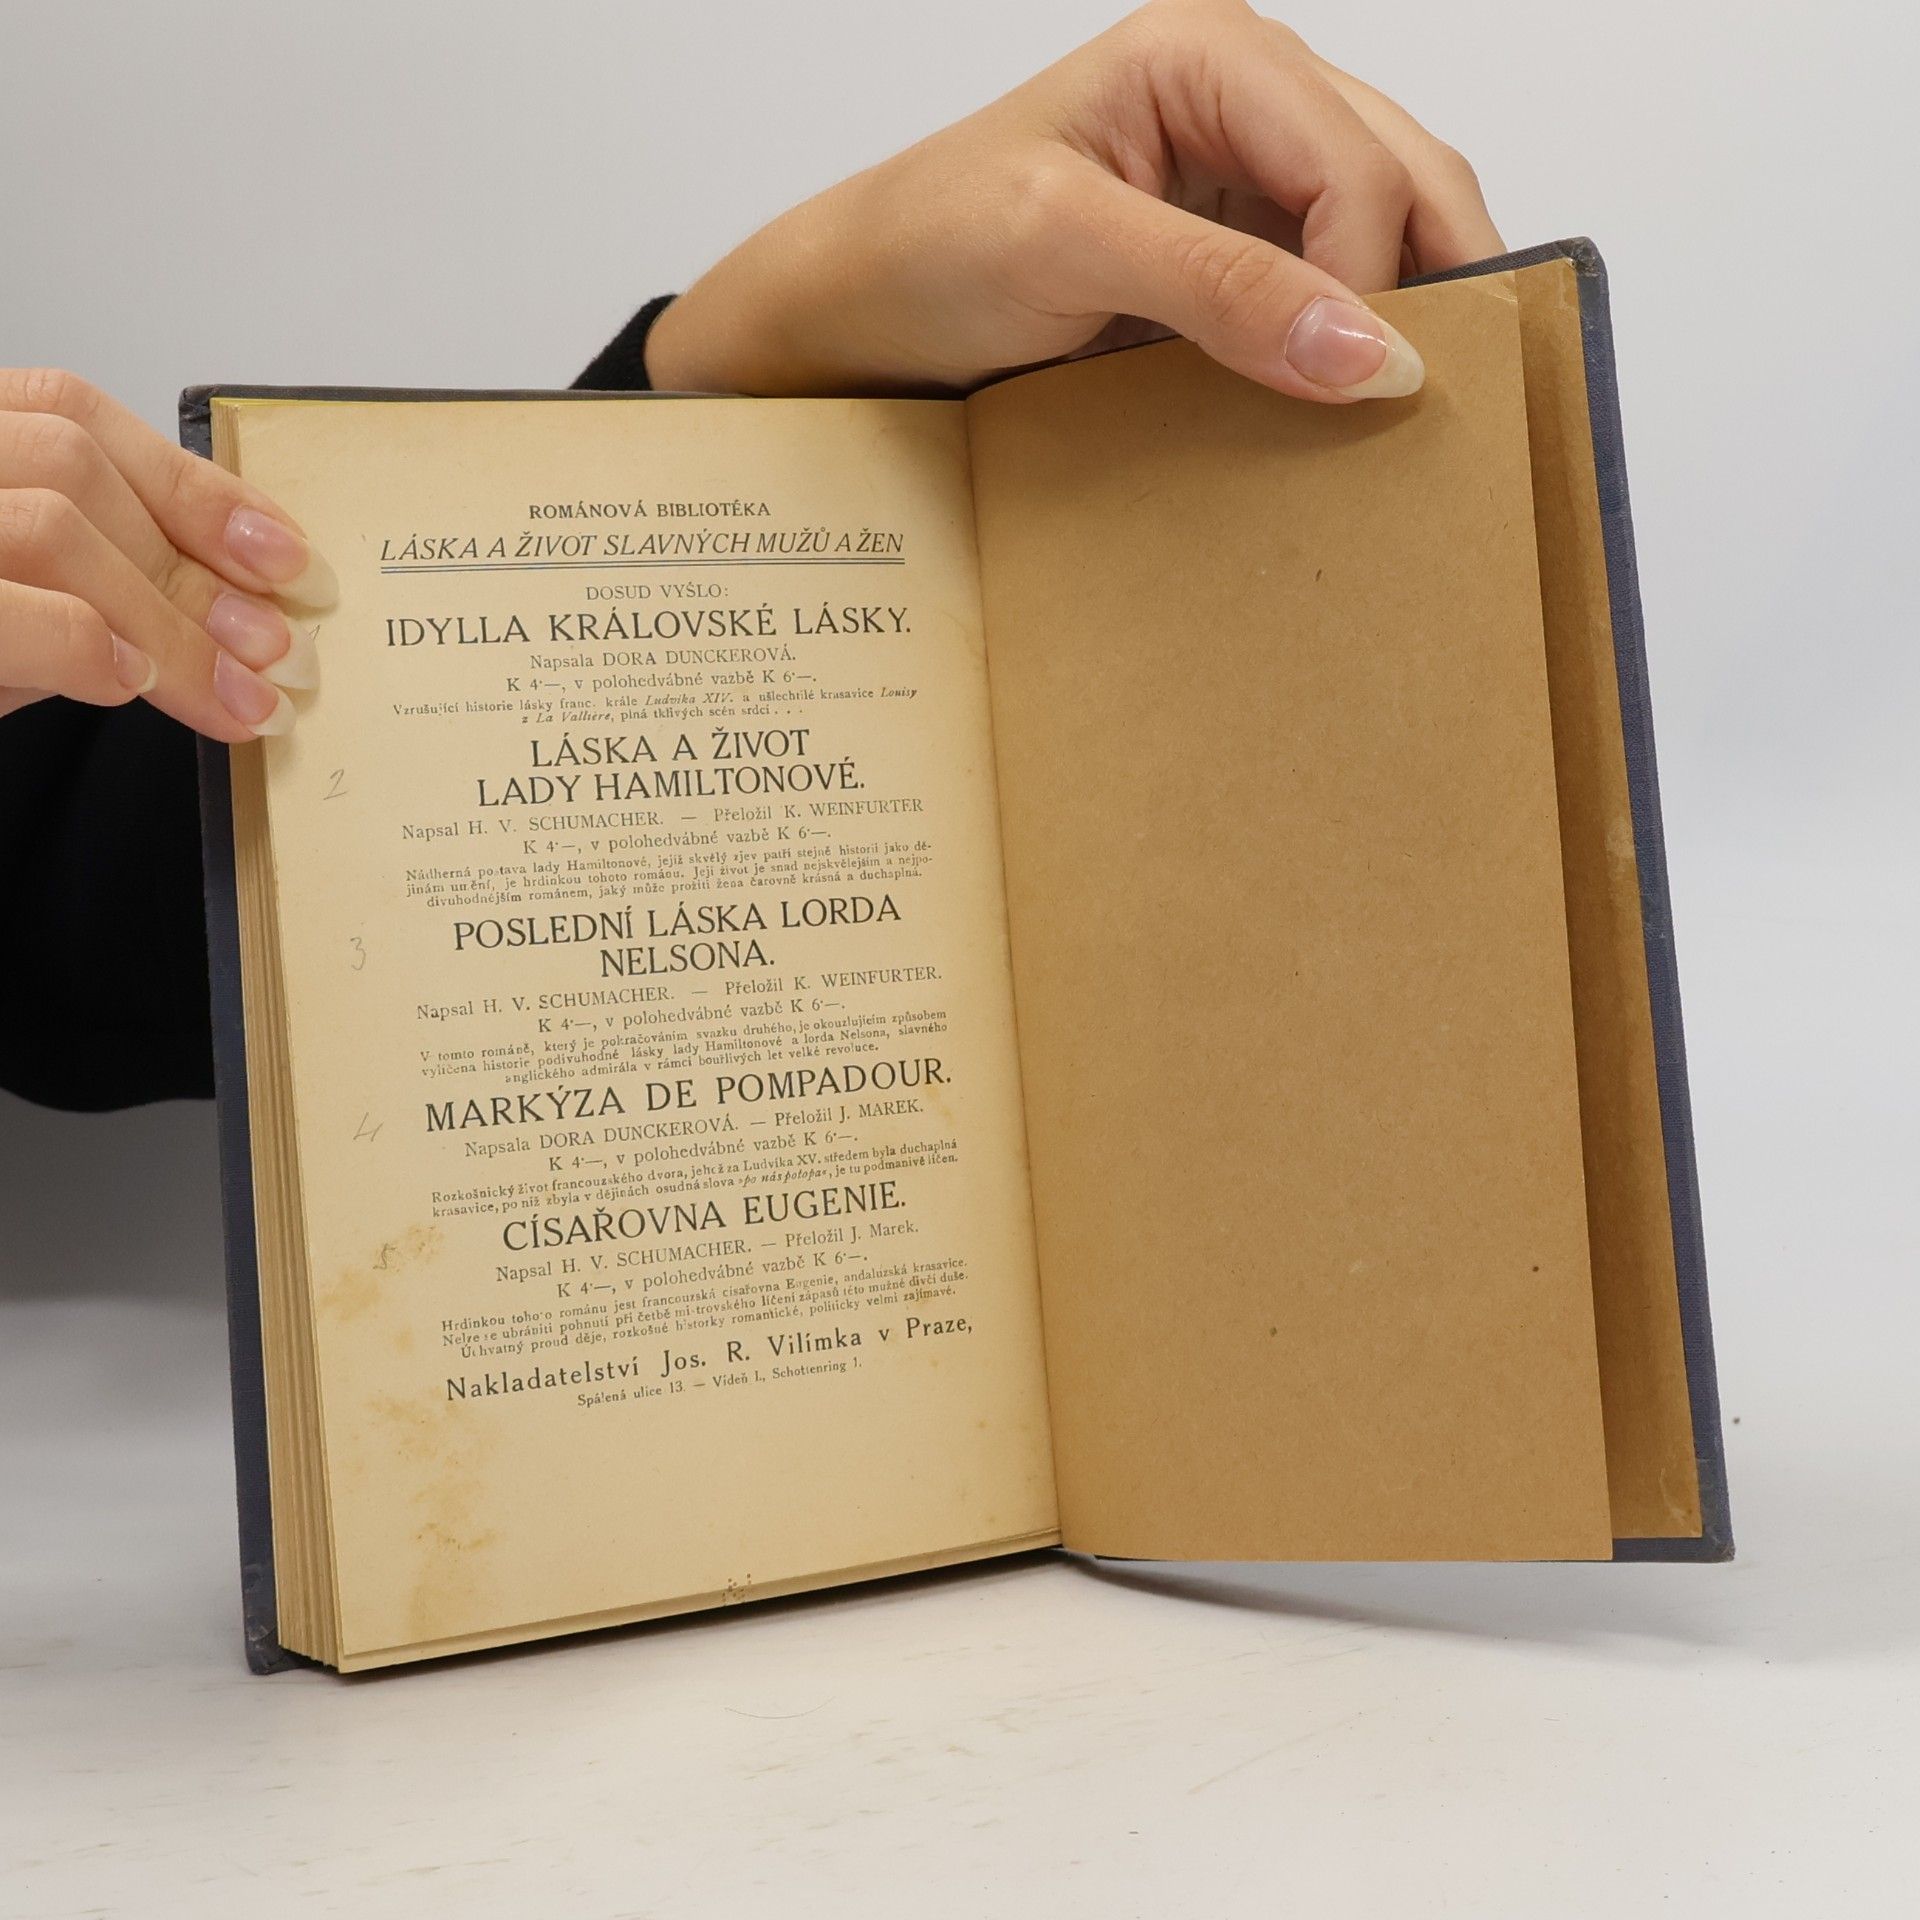 ROMÁNOVÁ BIBLIOTÉKA
LÁSKA A ŽIVOT SLAVNÝCH MUŽŮ A ŽEN
DOSUD VYŠLO:
1
IDYLLA KRÁLOVSKÉ LÁSKY.
Napsala DORA DUNCKEROVÁ.
K 4·—, v polohedvábné vazbě K 6·—.
Vzrušující historie lásky franc. krále Ludvíka XIV. a ušlechtilé krasavice Louisy
z La Valliére, plná tklivých scén srdcí . . .
2
LÁSKA A ŽIVOT
LADY HAMILTONOVÉ.
Napsal H. V. SCHUMACHER. — Přeložil K. WEINFURTER
K 4·—, v polohedvábné vazbě K 6·—.
Nádherná postava lady Hamiltonové, jejíž skvělý zjev patří stejně historii jako dě-
jinám umění, je hrdinkou tohoto románu. Její život je snad nejskvělejším a nejpo-
divuhodnějším románem, jaký může prožíti žena čarovně krásná a duchaplná.
3
POSLEDNÍ LÁSKA LORDA
NELSONA.
Napsal H. V. SCHUMACHER. — Přeložil K. WEINFURTER.
K 4·—, v polohedvábné vazbě K 6·—.
V tomto románě, který je pokračováním svazku druhého, je okouzlujícím způsobem
vylíčena historie podivuhodné lásky lady Hamiltonové a lorda Nelsona, slavného
anglického admirála v rámci bouřlivých let velké revoluce.
4
MARKÝZA DE POMPADOUR.
Napsala DORA DUNCKEROVÁ. — Přeložil J. MAREK.
K 4·—, v polohedvábné vazbě K 6·—.
Rozkošnický život francouzského dvora, jehož za Ludvíka XV. středem byla duchaplná
krasavice, po níž zbyla v dějinách osudná slova »po nás potopa«, je tu podmanivě líčen.
5
CÍSAŘOVNA EUGENIE.
Napsal H. V. SCHUMACHER. — Přeložil J. Marek.
K 4·—, v polohedvábné vazbě K 6·—.
Hrdinkou tohoto románu jest francouzská císařovna Eugenie, andaluzská krasavice.
Nelze se ubrániti pohnutí při četbě mistrovského líčení zápasů této mužné dívčí duše.
Úchvatný proud děje, rozkošné historky romantické, politicky velmi zajímavé.
Nakladatelství Jos. R. Vilímka v Praze,
Spálená ulice 13. — Vídeň I., Schottenring 1.